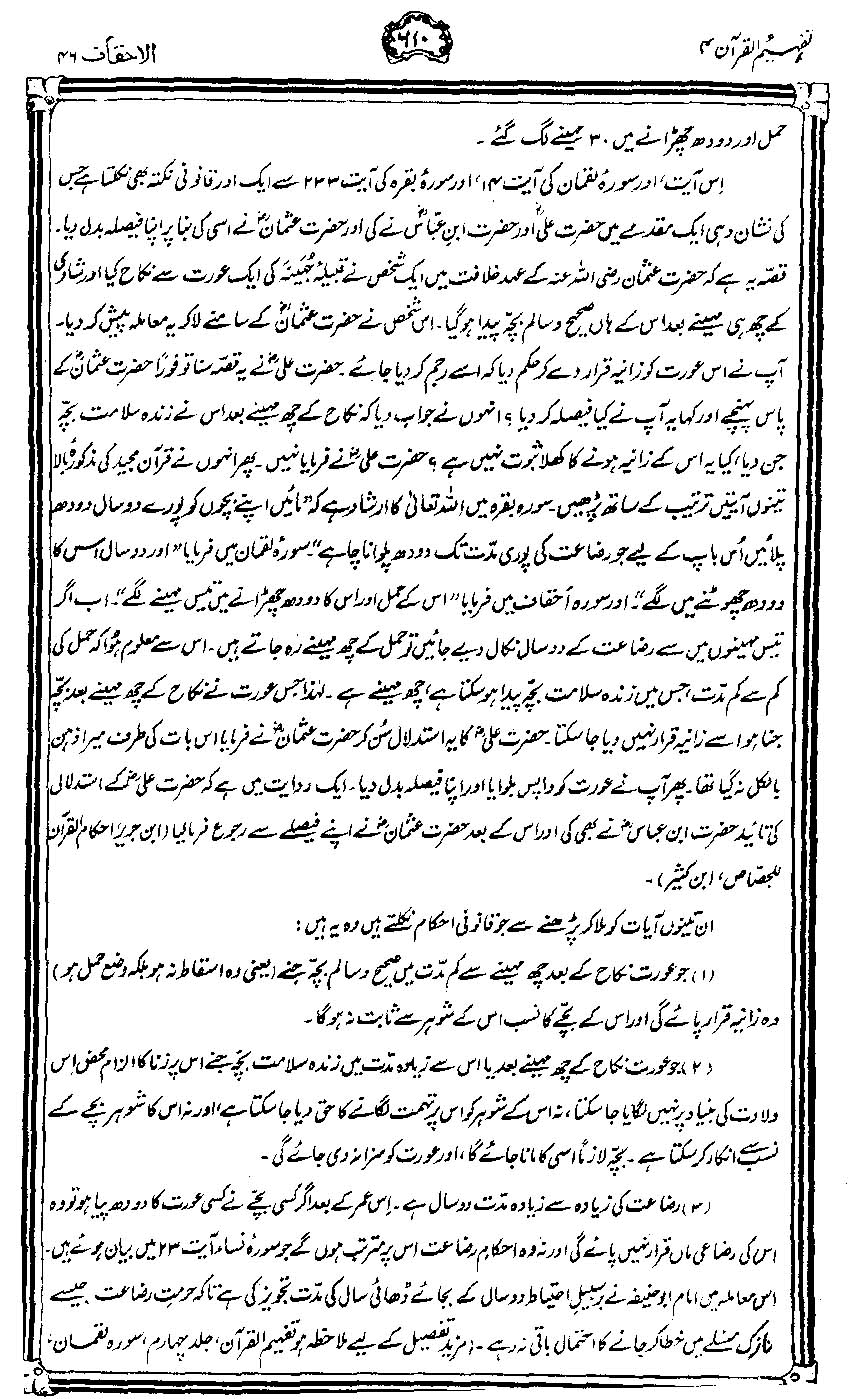 تفہیم القرآن ۴
۶۱۰
الاحقاف ۴۶
حمل اور دودھ چھڑانے میں ۳۰ مہینے لگ گئے ۔
اِس آیت، اور سورۂ لقمان کی آیت ۱۴، اور سورۂ بقرہ کی آیت ۲۳۳ سے ایک اور قانونی نکتہ بھی نکلتا ہے جس
کی نشان دہی ایک مقدمے میں حضرت علیؓ اور حضرت ابن عباسؓ نے کی اور حضرت عثمانؓ نے اسی کی بنا پر اپنا فیصلہ بدل دیا۔
قصّہ یہ ہے کہ حضرت عثمان رضی اللہ عنہ کے عہد خلافت میں ایک شخص نے قبیلۂ جُہَینہ کی ایک عورت سے نکاح کیا اور شادی
کے چھ ہی مہینے بعد اس کے ہاں صحیح و سالم بچّہ پیدا ہو گیا۔ اس شخص نے حضرت عثمانؓ کے سامنے لا کر یہ معاملہ پیش کر دیا۔
آپ نے اس عورت کو زانیہ قرار دے کر حکم دیا کہ اسے رجم کر دیا جائے ۔ حضرت علیؓ نے یہ قصّہ سنا تو فوراً حضرت عثمانؓ کے
پاس پہنچے اور کہا یہ آپ نے کیا فیصلہ کر دیا ؟ انہوں نے جواب دیا کہ نکاح کے چھ مہینے بعد اس نے زندہ سلامت بچّہ
جن دیا، کیا یہ اس کے زانیہ ہونے کا کھلا ثبوت نہیں ہے ؟ حضرت علیؓ نے فرمایا نہیں ۔ پھر انہوں نے قرآن مجید کی مذکورۂ بالا
تینوں آیتیں ترتیب کے ساتھ پڑھیں ۔ سورہ بقرہ میں اللہ تعالیٰ کا ارشاد ہے کہ ”مائیں اپنے بچوں کو پورے دو سال دودھ
پلائیں اُس باپ کے لیے جو رضاعت کی پوری مدّت تک دودھ پلوانا چاہے“۔ سورۂ لقمان میں فرمایا ”اور دو سال اس کا
دودھ چھوٹنے میں لگے“۔ اور سورہ احقاف میں فرمایا ”اس کے حمل اور اس کا دودھ چھڑانے میں تیس مہینے لگے“۔ اب اگر
تیس مہینوں میں سے رضاعت کے دو سال نکال دیے جائیں تو حمل کے چھ مہینے رہ جاتے ہیں ۔ اس سے معلوم ہوا کہ حمل کی
کم سے کم مدّت، جس میں زندہ سلامت بچّہ پیدا ہو سکتا ہے، چھ مہینے ہے ۔ لہٰذا جس عورت نے نکاح کے چھ مہینے بعد بچّہ
جنا ہو اسے زانیہ قرار نہیں دیا جا سکتا۔ حضرت علیؓ کا یہ استدلال سُن کر حضرت عثمانؓ نے فرمایا اس بات کی طرف میرا ذہن
بالکل نہ گیا تھا۔ پھر آپ نے عورت کو واپس بلوایا اور اپنا فیصلہ بدل دیا۔ ایک روایت میں ہے کہ حضرت علیؓ کے استدلال
کی تائید حضرت ابن عباسؓ نے بھی کی اور اس کے بعد حضرت عثمانؓ نے اپنے فیصلے سے رجوع فرمالیا (ابن جریر، احکام القرآن
للجصّاص، ابن کثیر) ۔
ان تینوں آیات کو ملا کر پڑھنے سے جو قانونی احکام نکلتے ہیں وہ یہ ہیں :
(۱) جو عورت نکاح کے بعد چھ مہینے سے کم مدّت میں صحیح و سالم بچّہ جنے (یعنی وہ اسقاط نہ ہو بلکہ وضع حمل ہو)
وہ زانیہ قرار پائے گی اور اس کے بچّے کا نسب اس کے شوہر سے ثابت نہ ہو گا۔
(۲) جو عورت نکاح کے چھ مہینے بعد یا اس سے زیادہ مدّت میں زندہ سلامت بچّہ جنے اس پر زنا کا الزام محض اِس
ولادت کی بنیاد پر نہیں لگایا جا سکتا، نہ اس کے شوہر کو اس پر تہمت لگانے کا حق دیا جا سکتا ہے، اور نہ اس کا شوہر بچے کے
نسب سے انکار کر سکتا ہے ۔ بچّہ لازماً اسی کا مانا جائے گا، اور عورت کو سزا نہ دی جائے گی ۔
(۳) رضاعت کی زیادہ سے زیادہ مدّت دو سال ہے ۔ اِس عمر کے بعد اگر کسی بچّے نے کسی عورت کا دودھ پیا ہو تو وہ
اس کی رضاعی ماں قرار نہیں پائے گی اور نہ وہ احکام رضاعت اس پر مترتب ہوں گے جو سورۂ نساء، آیت ۲۳ میں بیان ہوئے ہیں۔
اس معاملہ میں امام ابو حنیفہ نے برسبیل احتیاط دو سال کے بجائے ڈھائی سال کی مدّت تجویز کی ہے تاکہ حرمتِ رضاعت جیسے
نازک مسئلے میں خطا کر جانے کا احتمال باقی نہ رہے ۔ (مزید تفصیل کے لیے ملاحظہ ہو تفہیم القرآن، جلد چہارم، سورہ لقمان،